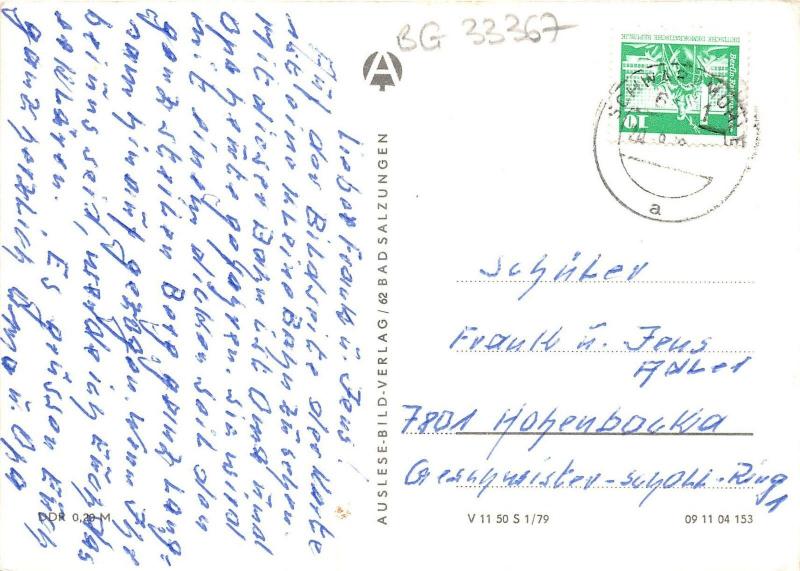 Lieber Frank u. Jens!
Auf der Bildseite der Karte
ist eine kleine Bahn zu sehen.
mit dieser Bahn ist Oma und
Opa heute gefahren. Sie wird
mit einem dicken Seil den
ganz steilen Berg ganz lang-
sam hinauf gezogen. Wenn Ihr
bei uns seid, werde ich Euch das
erklären. Es grüssen Euch
ganz herzlich Oma u. Opa
DDR 0,20 M
A
AUSLESE-BILD-VERLAG / 62 BAD SALZUNGEN
BG 33367
DEUTSCHE DEMOKRATISCHE REPUBLIK
Berlin
10
a
Schüler
Frank u. Jens
Adler
7801 Hohenbockia
Geschwister-Scholl-Ring
1
V 11 50 S 1/79
09 11 04 153